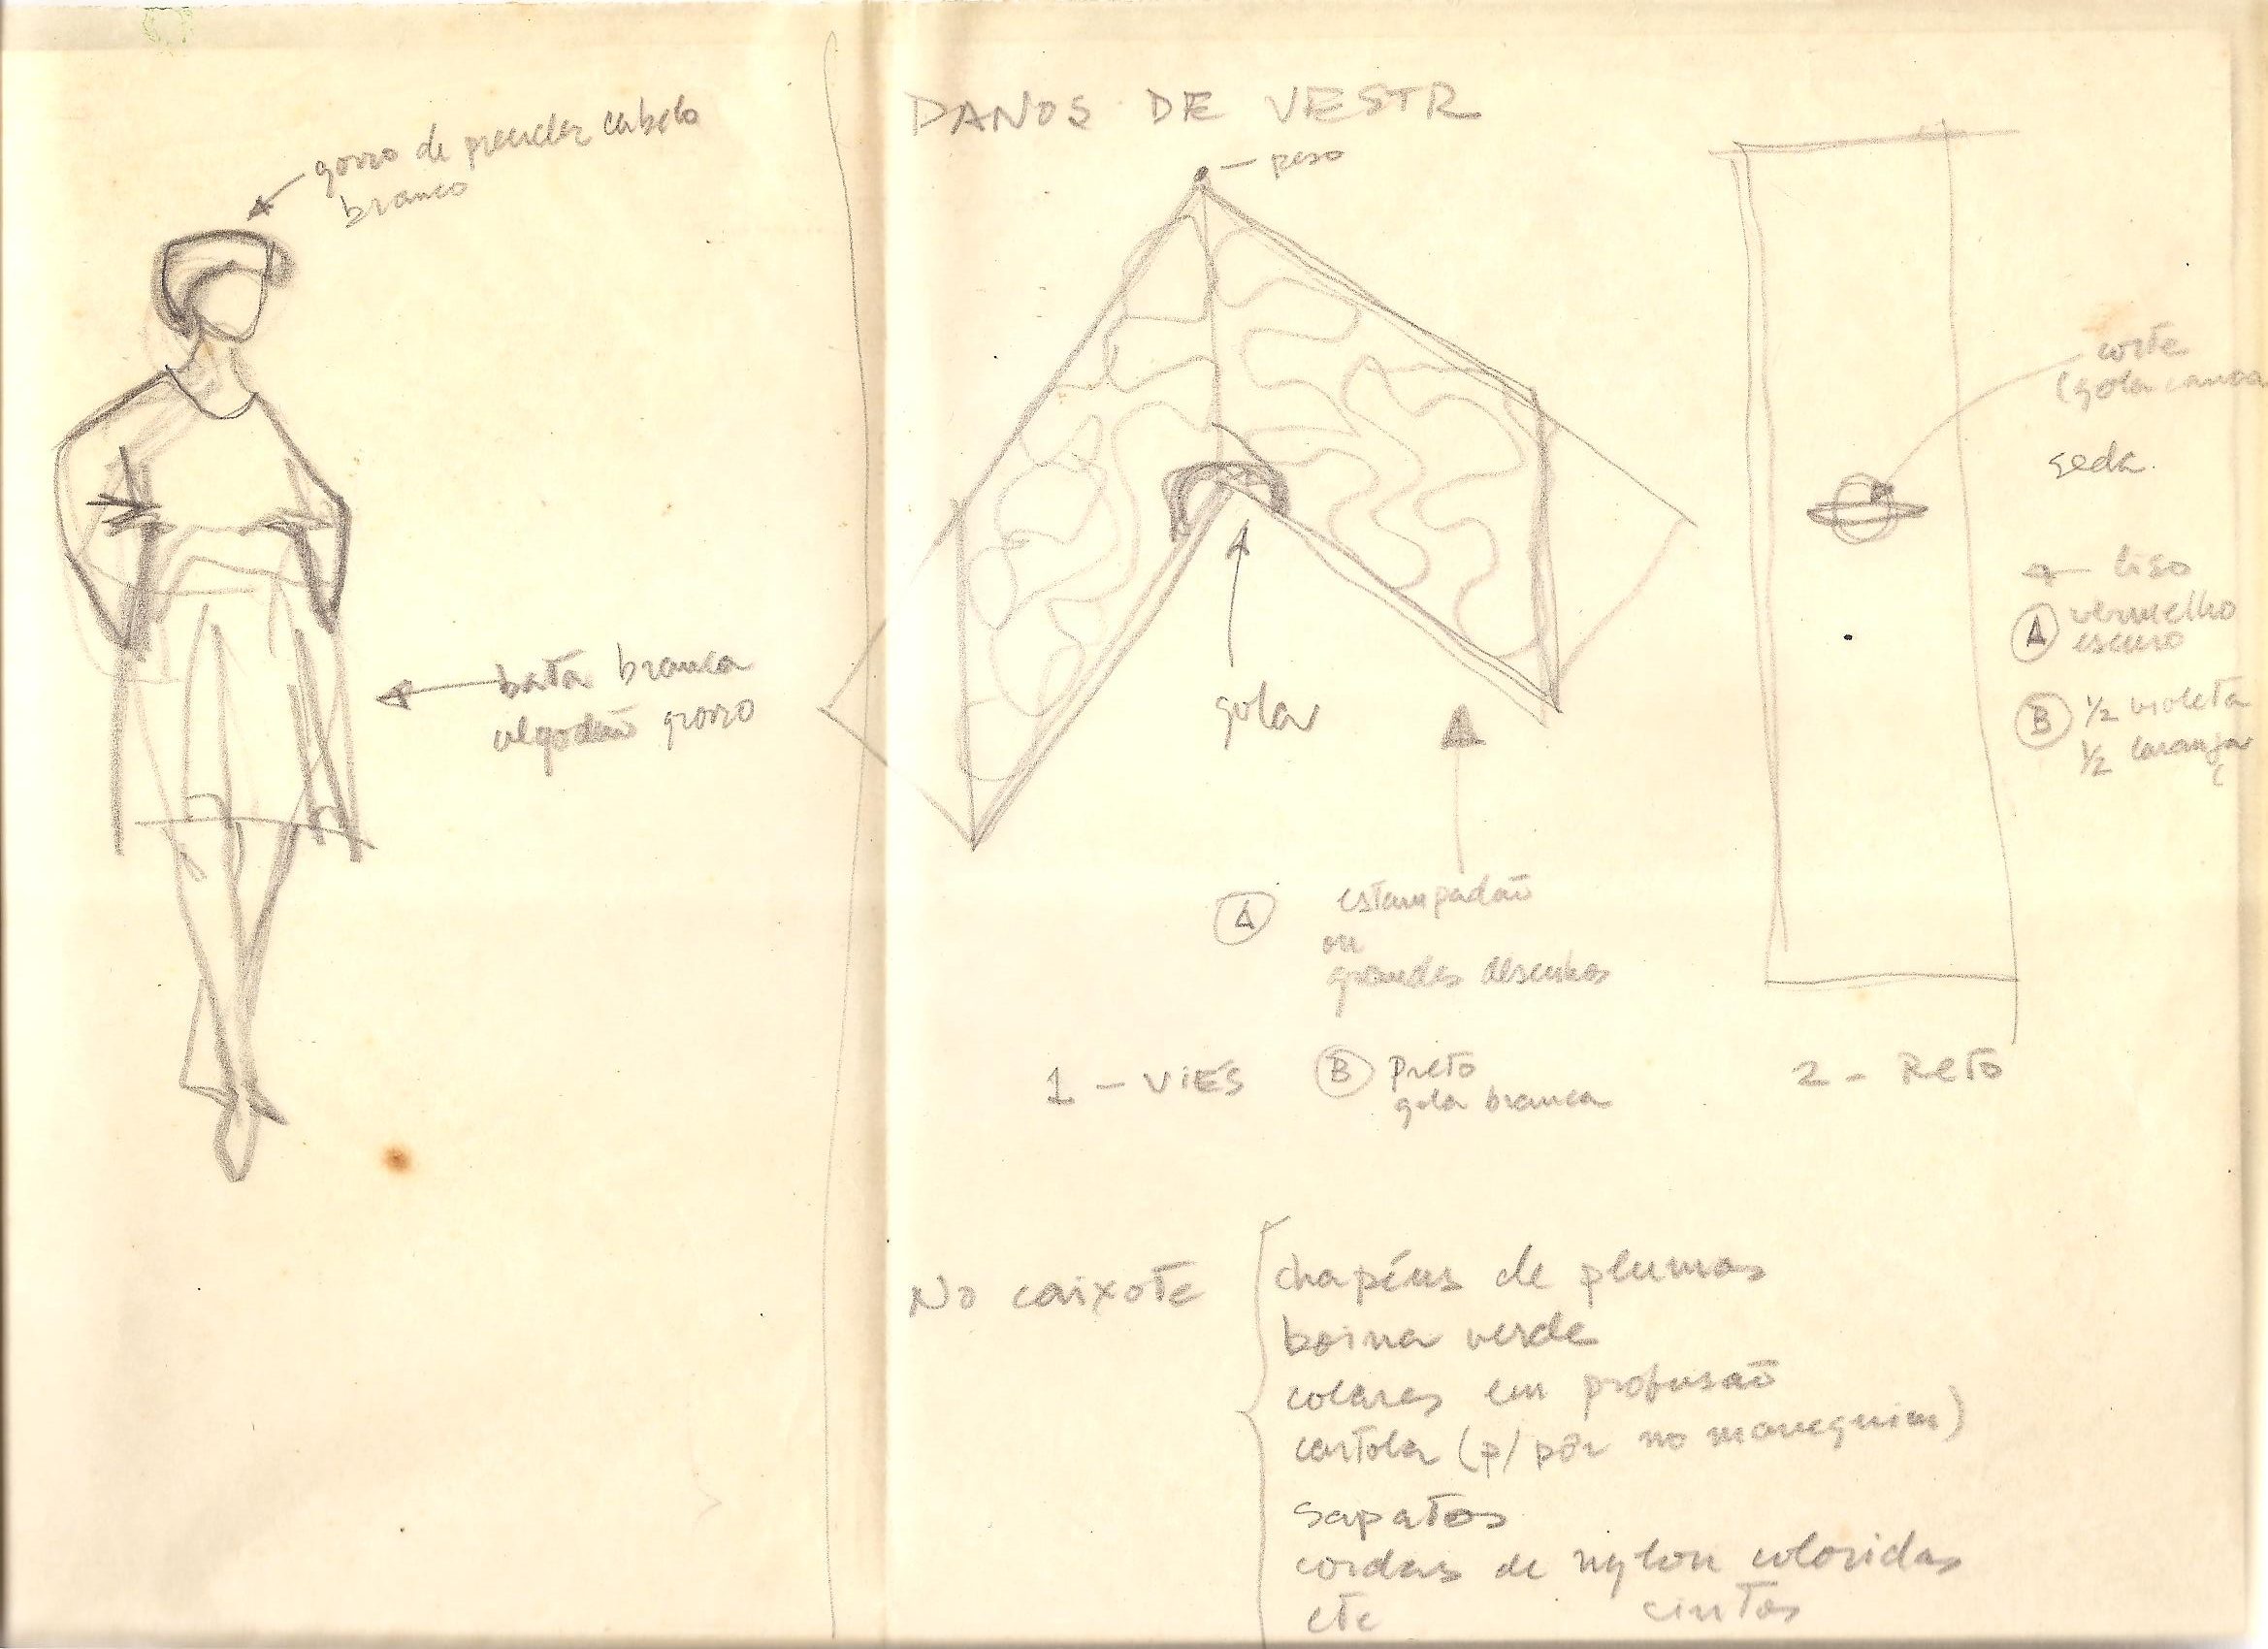 gorro de prender cabelo
branco
bata branca
algodão grosso
DANOS DE VESTR
peso
gola
A
estampadão
ou
grandes desenhos
1 - VIÉS
B Preto
gola branca
corte
(gola canoa
seda
liso
A vermelho
escuro
B 1/2 violeta
1/2 laranja
2 - Reto
No caixote
chapéus de plumas
boina verde
colares em profusão
cartola (p/ pôr no manequim)
sapatos
cordas de nylon coloridas
etc cintos